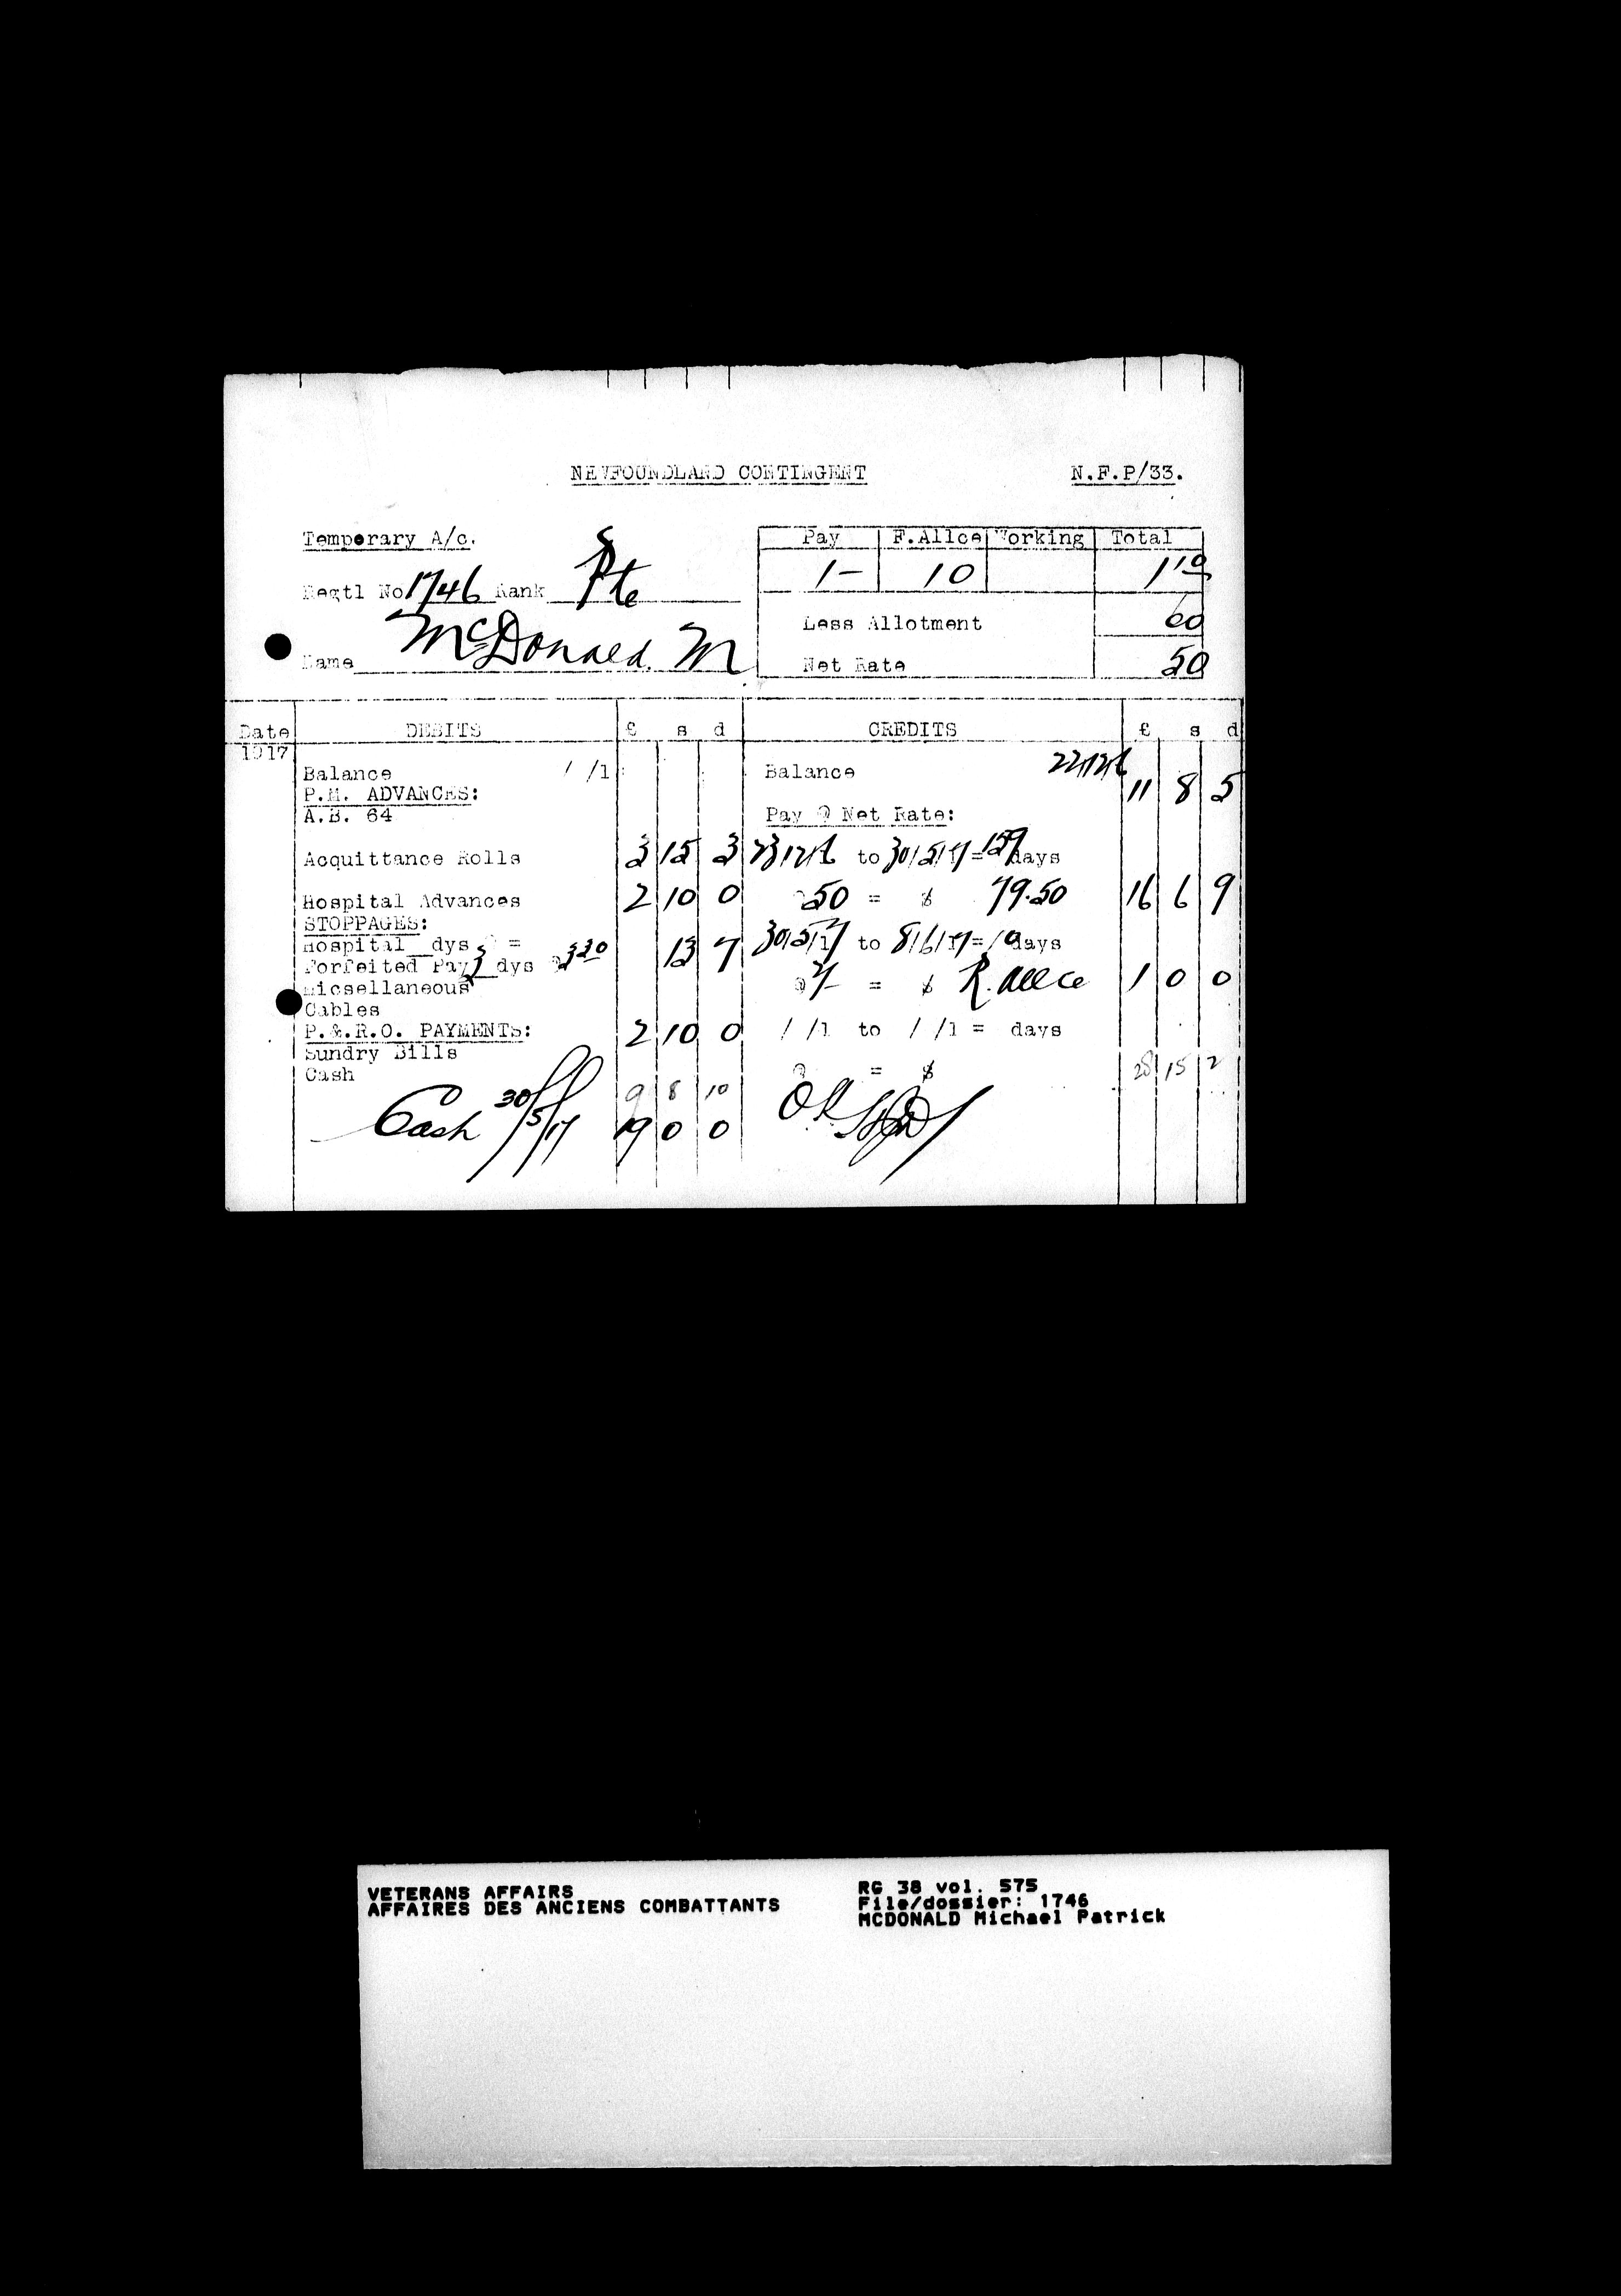 NEWFOUNDLAND CONTINGENT N.F.P/33.
Temporary A/c.
Pay F.Allce Working Total
1- 10 1 10
Regtl No 1746 Rank Pte
Less Allotment 60
Name McDonald. M
Net Rate 50
Date DEBITS £ s d CREDITS £ s d
1917
Balance / /1 Balance 22/12/16 11 8 5
P.M. ADVANCES:
A.B. 64 Pay @ Net Rate:
Acquittance Rolls 3 15 3 23/12/16 to 30/5/17 = 159 days
Hospital Advances 2 10 0 @ 50 = $ 79.50 16 6 9
STOPPAGES:
Hospital dys @ = 30/5/17 to 8/6/17 = 10 days
Forfeited Pay 3 dys @ 3 30 13 7
Micsellaneous @ 2/- = $ R. Allce 1 0 0
Cables
P.&.R.O. PAYMENTS: 2 10 0 / /1 to / /1 = days
Sundry Bills
Cash @ = $ 28 15 2
9 8 10
Cash 30/5/17 19 0 0 OK
VETERANS AFFAIRS RG 38 vol. 575
AFFAIRES DES ANCIENS COMBATTANTS File/dossier: 1746
MCDONALD Michael Patrick